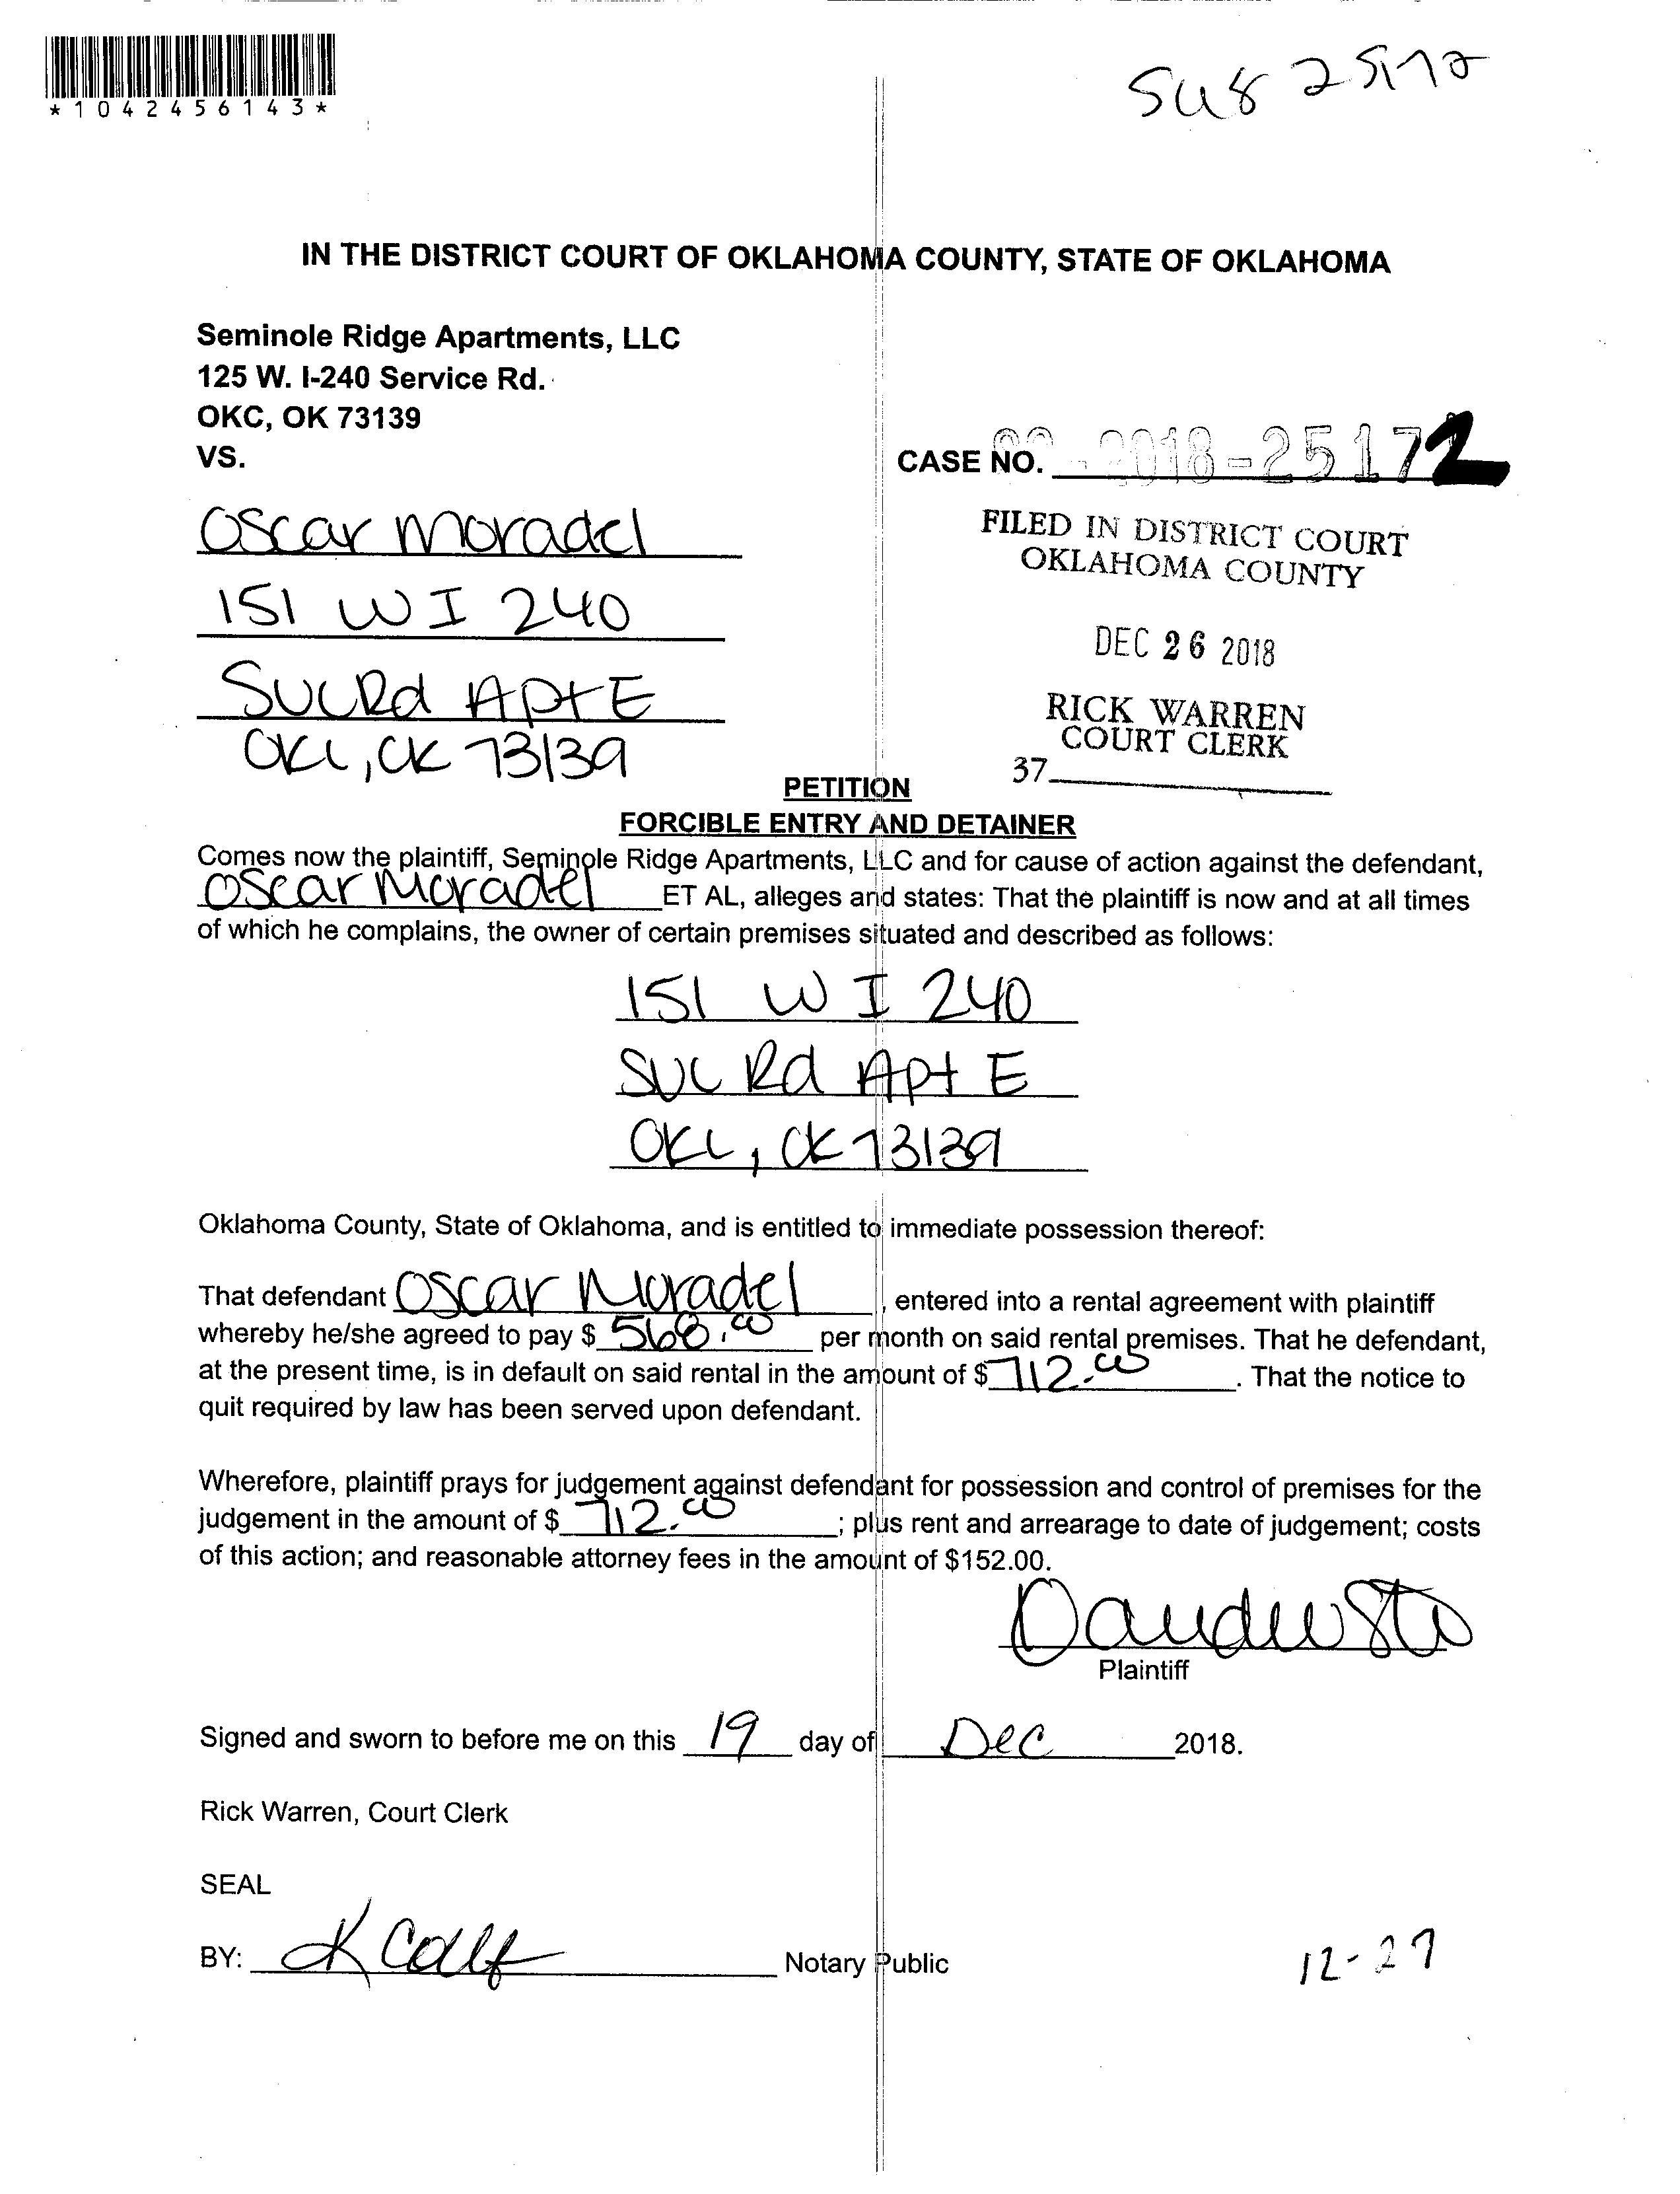 *1042456143*
IN THE DISTRICT COURT OF OKLAHOMA COUNTY, STATE OF OKLAHOMA
Seminole Ridge Apartments, LLC
125 W. I-240 Service Rd.
OKC, OK 73139
VS.
CASE NO. -2018-25172
FILED IN DISTRICT COURT
OKLAHOMA COUNTY
DEC 26 2018
RICK WARREN
COURT CLERK
37
Oscar Moradel
151 W I 240
SVC Rd Apt E
OKC, OK 73139
PETITION
FORCIBLE ENTRY AND DETAINER
Comes now the plaintiff, Seminole Ridge Apartments, LLC and for cause of action against the defendant,
Oscar Moradel ET AL, alleges and states: That the plaintiff is now and at all times
of which he complains, the owner of certain premises situated and described as follows:
151 W I 240
SVC Rd Apt E
OKC, OK 73139
Oklahoma County, State of Oklahoma, and is entitled to immediate possession thereof:
That defendant Oscar Moradel, entered into a rental agreement with plaintiff
whereby he/she agreed to pay $ 568.00 per month on said rental premises. That he defendant,
at the present time, is in default on said rental in the amount of $ 712.00. That the notice to
quit required by law has been served upon defendant.
Wherefore, plaintiff prays for judgement against defendant for possession and control of premises for the
judgement in the amount of $ 712.00; plus rent and arrearage to date of judgement; costs
of this action; and reasonable attorney fees in the amount of $152.00.
Plaintiff
Signed and sworn to before me on this 19 day of Dec 2018.
Rick Warren, Court Clerk
SEAL
BY: Notary Public
12-27